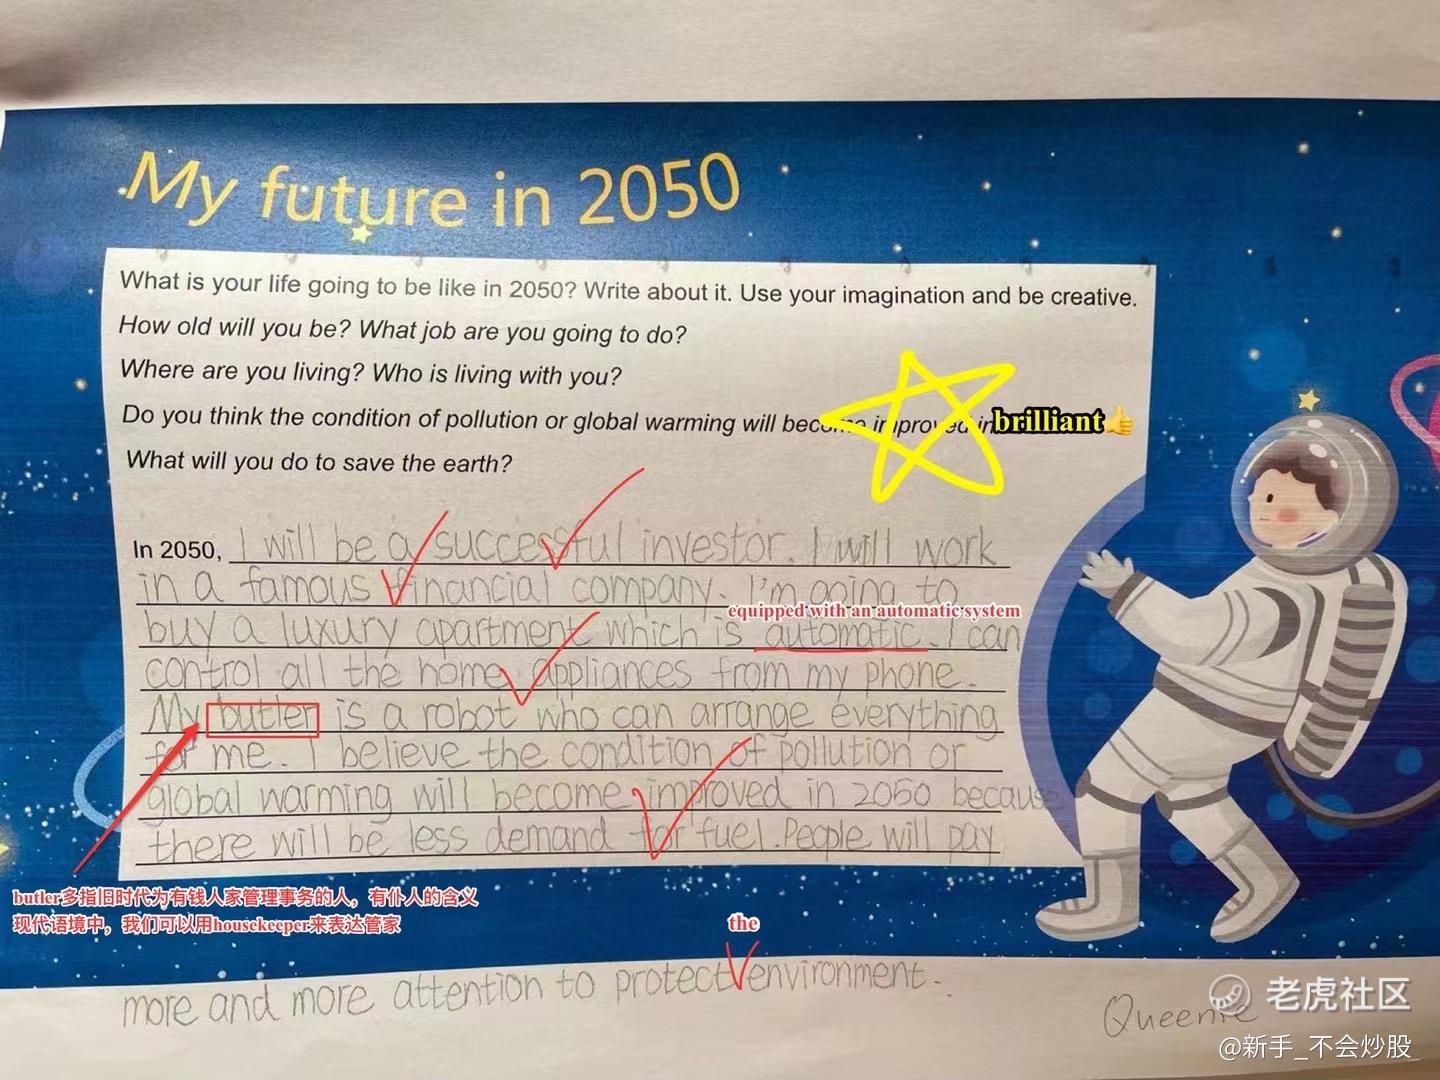 My future in 2050
What is your life going to be like in 2050? Write about it. Use your imagination and be creative.
How old will you be? What job are you going to do?
Where are you living? Who is living with you?
Do you think the condition of pollution or global warming will become improved in
brilliant👍
What will you do to save the earth?
In 2050, I will be a successful investor. I will work
in a famous financial company. I'm going to
equipped with an automatic system
buy a luxury apartment which is automatic. I can
control all the home appliances from my phone.
My butler is a robot who can arrange everything
for me. I believe the condition of pollution or
global warming will become improved in 2050 because
there will be less demand for fuel. People will pay
butler多指旧时代为有钱人家管理事务的人，有仆人的含义
现代语境中，我们可以用housekeeper来表达管家
the
more and more attention to protect environment.
Queenie
老虎社区
@新手_不会炒股